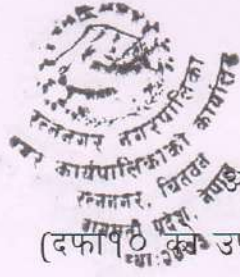 रत्ननगर नगरपालिका
नगर कार्यपालिकाको कार्यालय
रत्ननगर, चितवन
बागमती प्रदेश, नेपाल
(दफा१० को